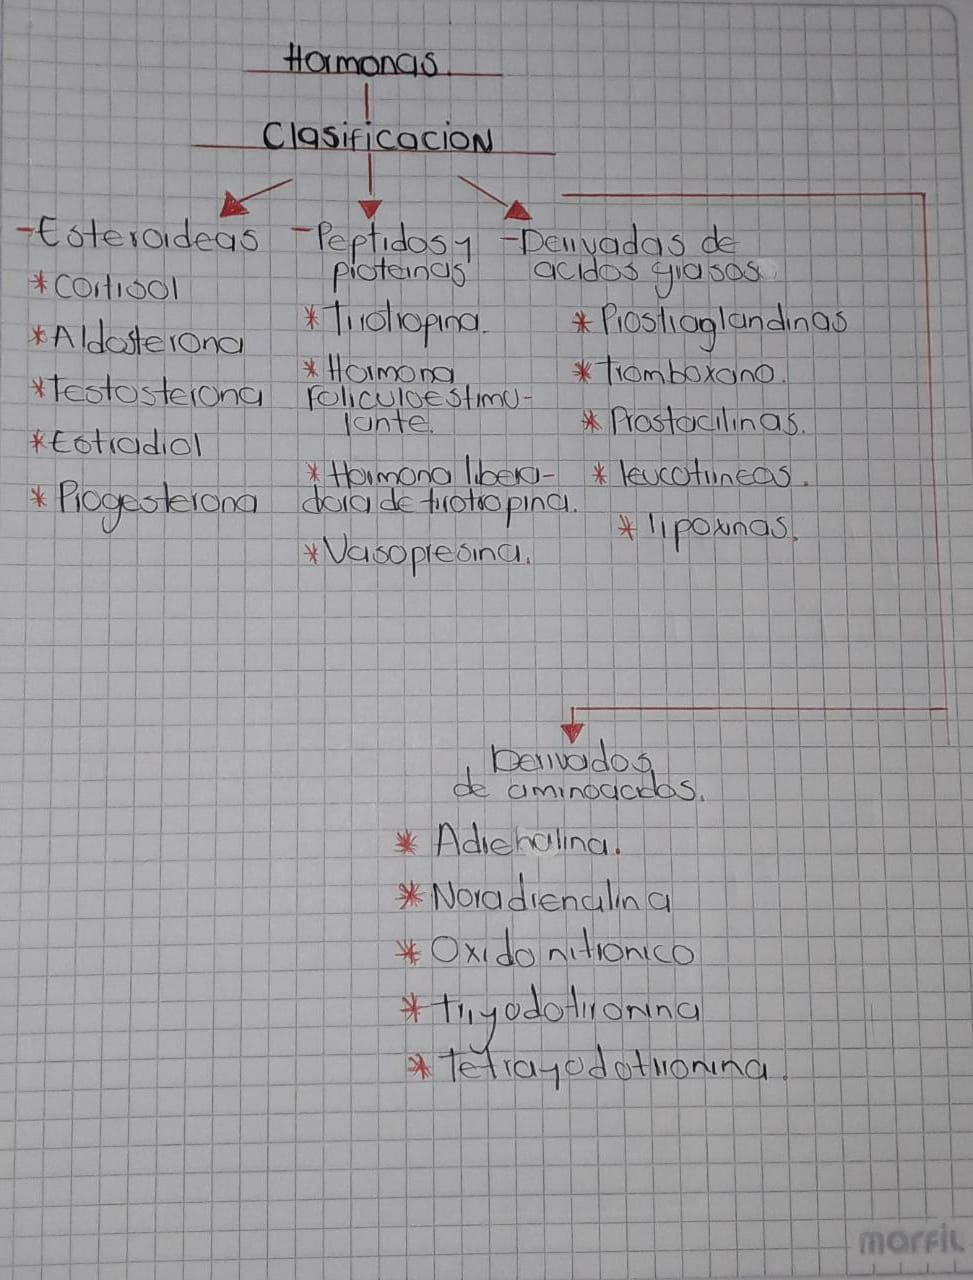 Hormonas.
Clasificacion
-Esteroideas
*Cortisol
*Aldosterona
*Testosterona
*Estradiol
*Progesterona
-Peptidos y
proteinas
*Tirotropina.
*Hormona
foliculoestimu-
lante.
*Hormona libera-
dora de tirotropina.
*Vasopresina.
-Derivadas de
acidos grasos
*Prostraglandinas
*Tromboxano.
*Prostacilinas.
*leucotrineas.
*lipoxinas.
Derivados
de aminoacidos.
*Adrenalina.
*Noradrenalina
*Oxido nitronico
*triyodotironina
*Tetrayodotironina.
marfil